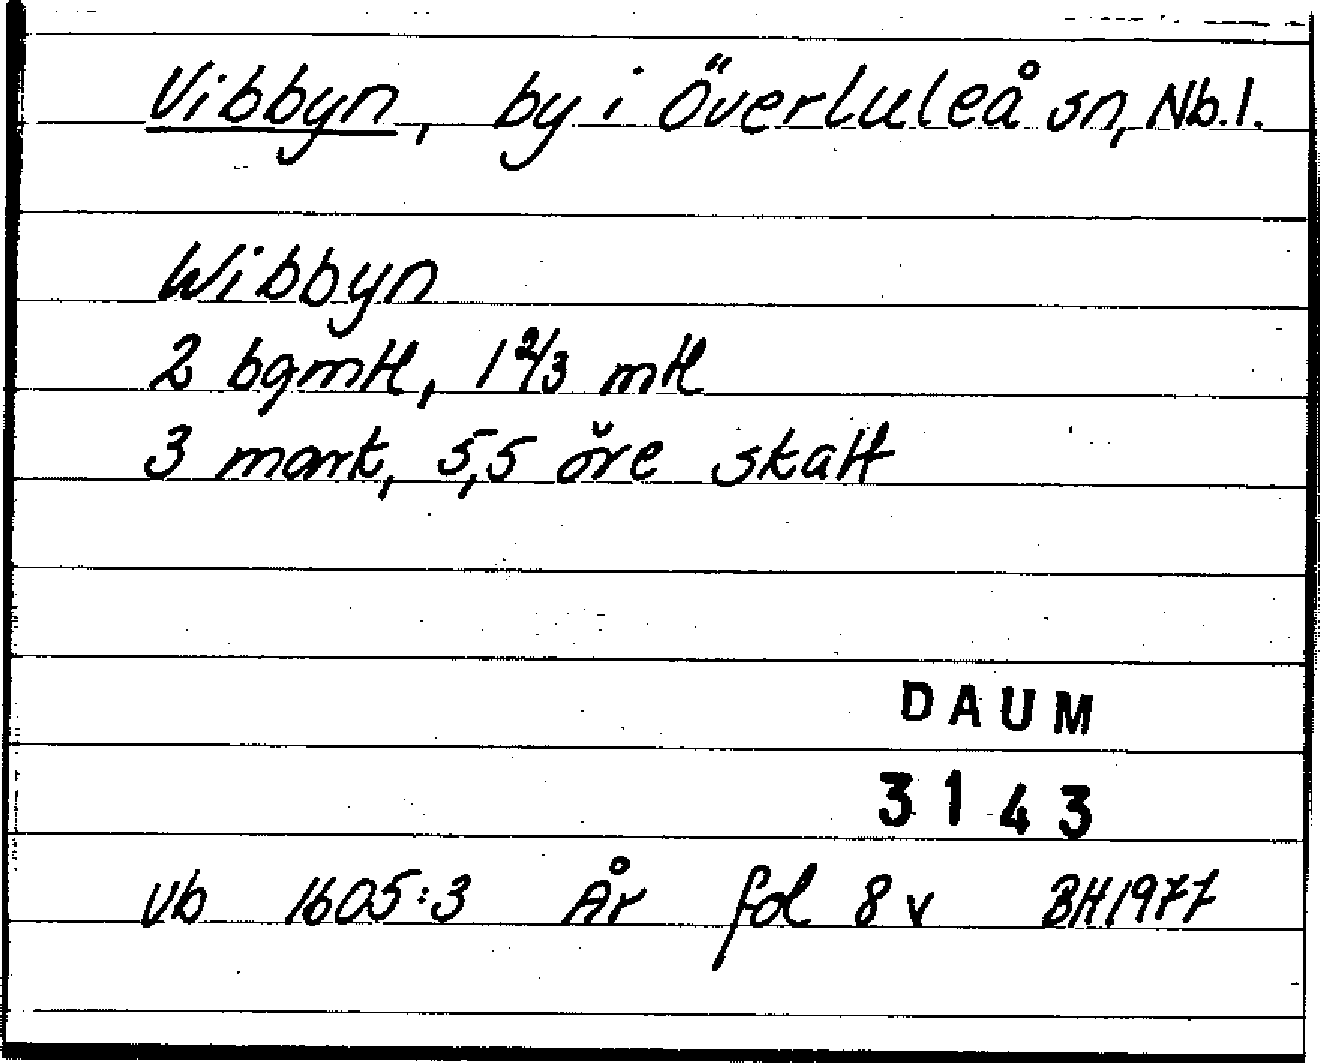 Vibbyn, by i Överluleå sn, Nb.l.
Wibbyn
2 bgmtl, 1 2/3 mtl
3 mark, 5,5 öre skatt
DAUM
3143
Vb 1605:3 År fol 8 v BH1977